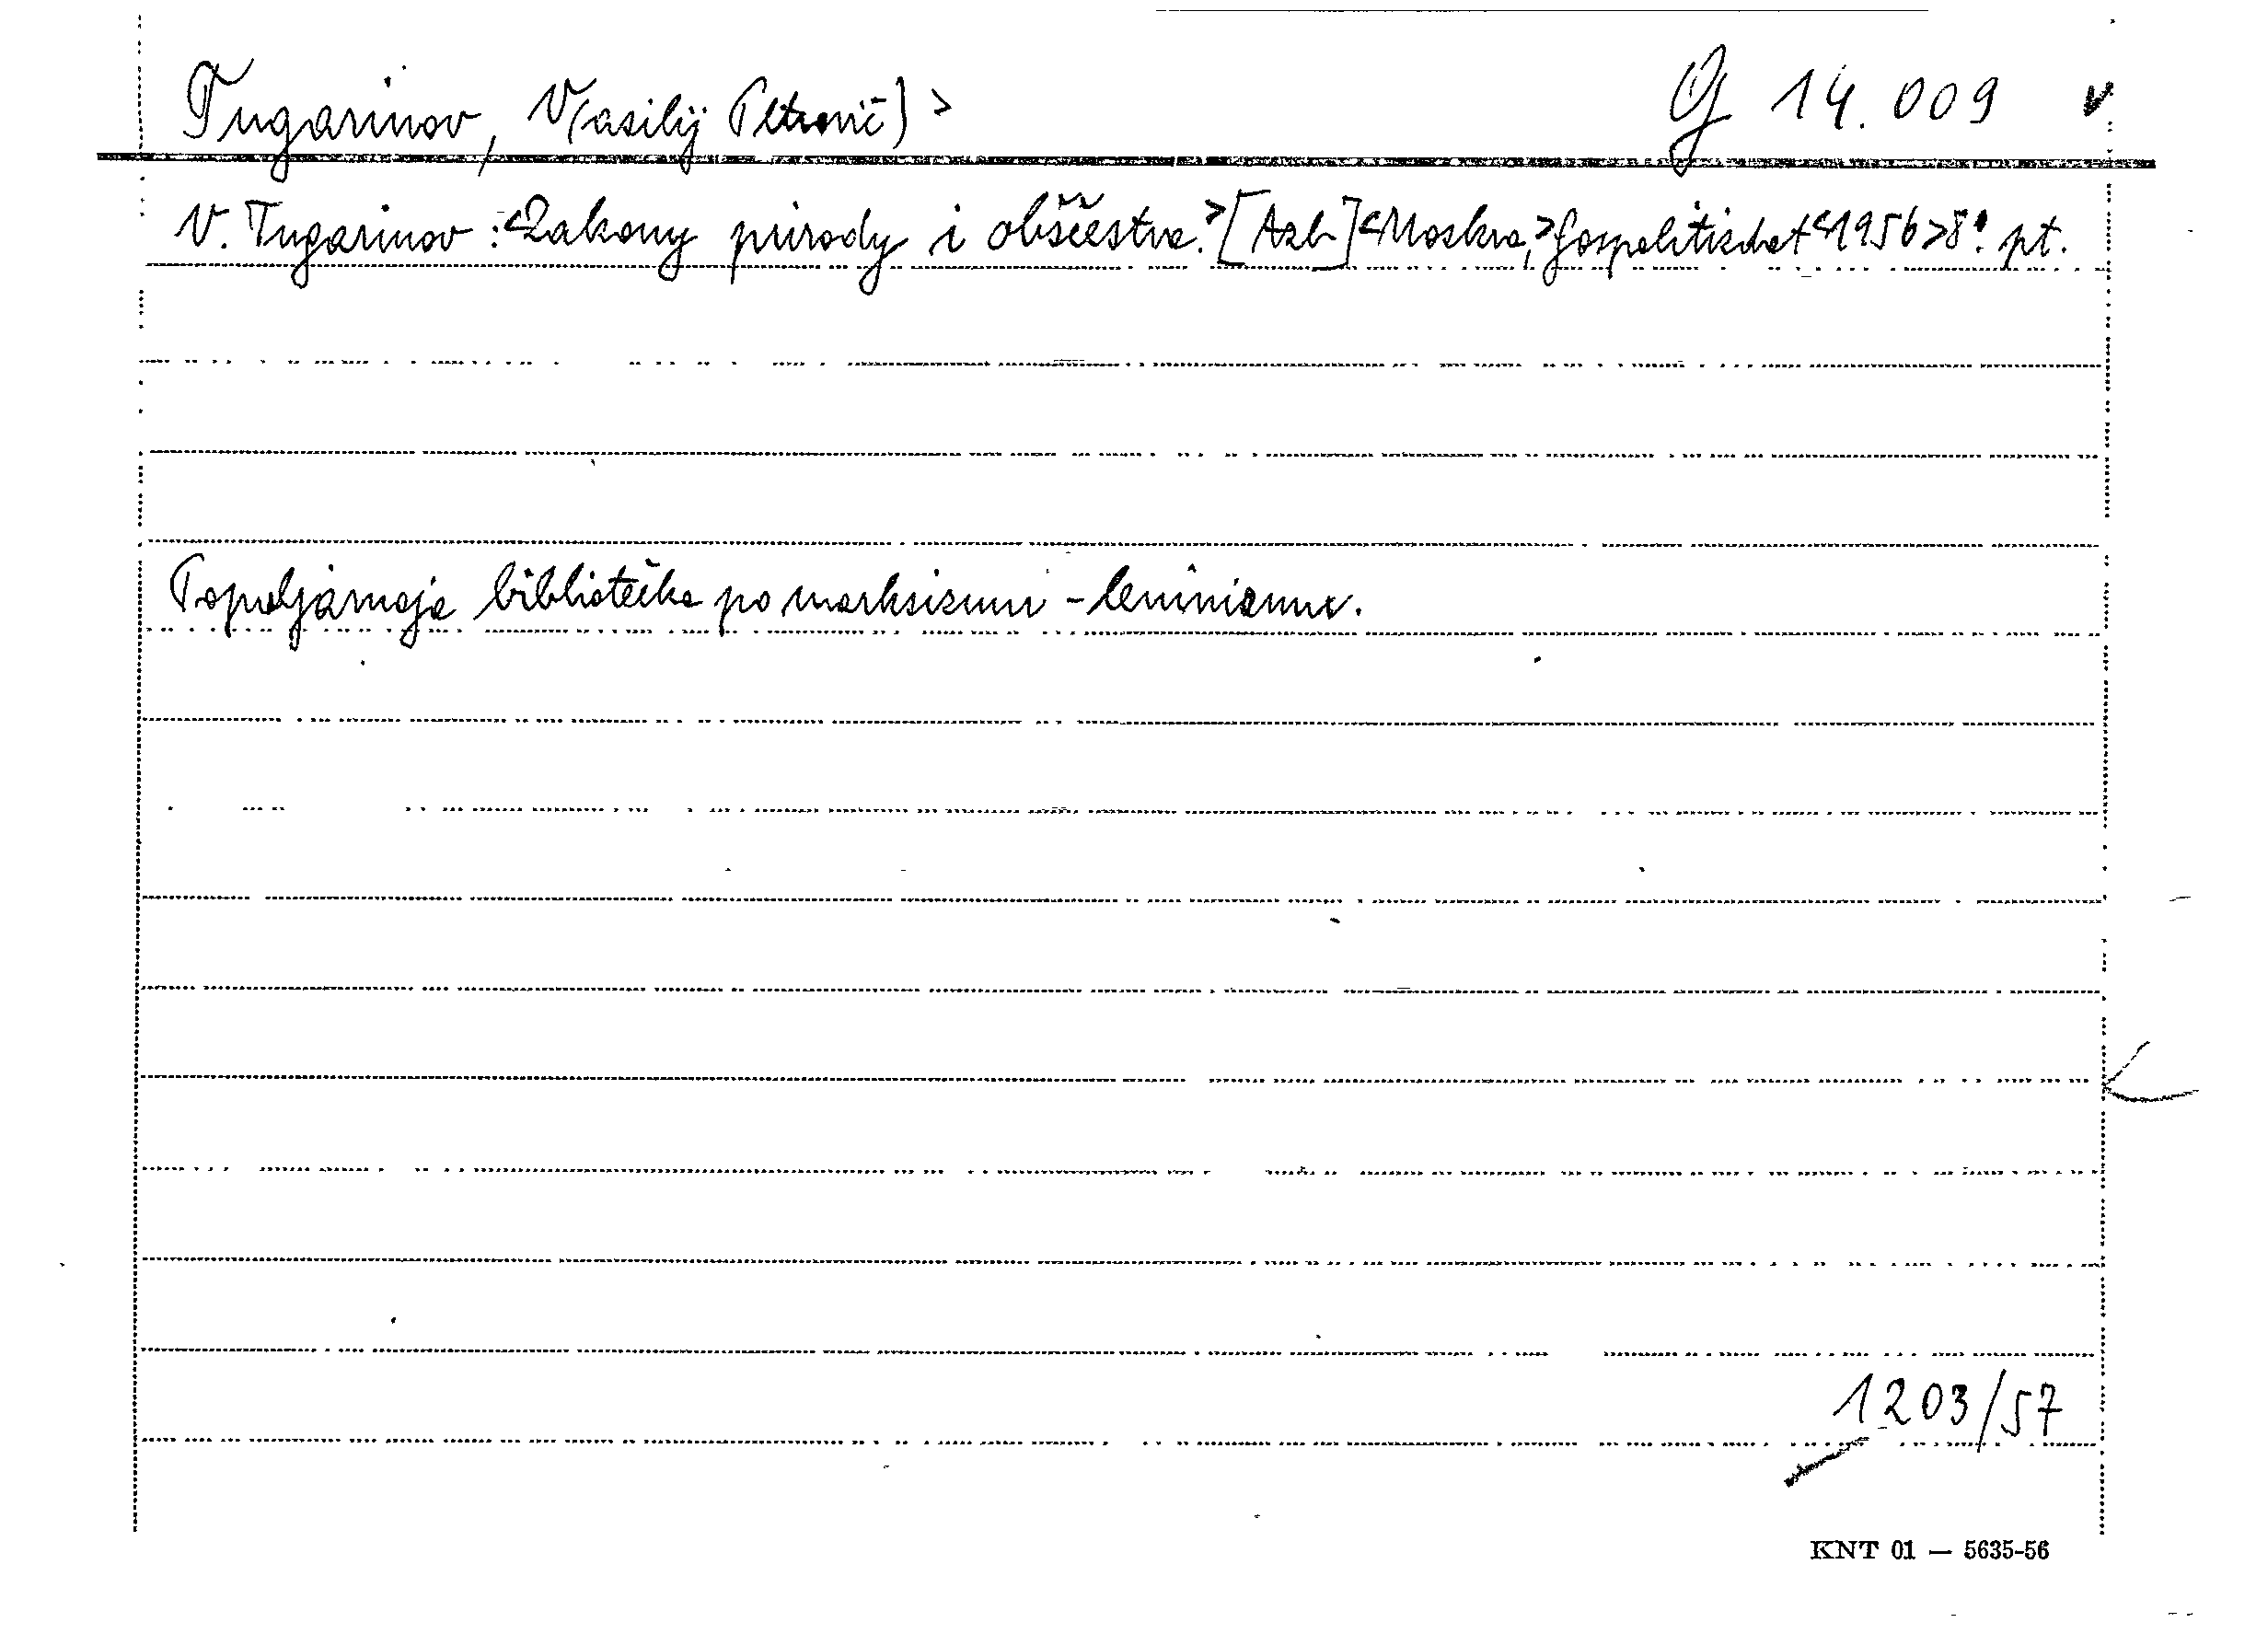 Tugarinov, V(asilij Petrovič) > G 14.009 v
V. Tugarinov : <Zakony prirody i obščestva.> [Azb.] <Moskva,> Gospolitizdat <1956> 8° pt.
Populjarnaja bibliotečka po marksizmu - leninizmu.
1203/57
KNT 01 — 5635-56